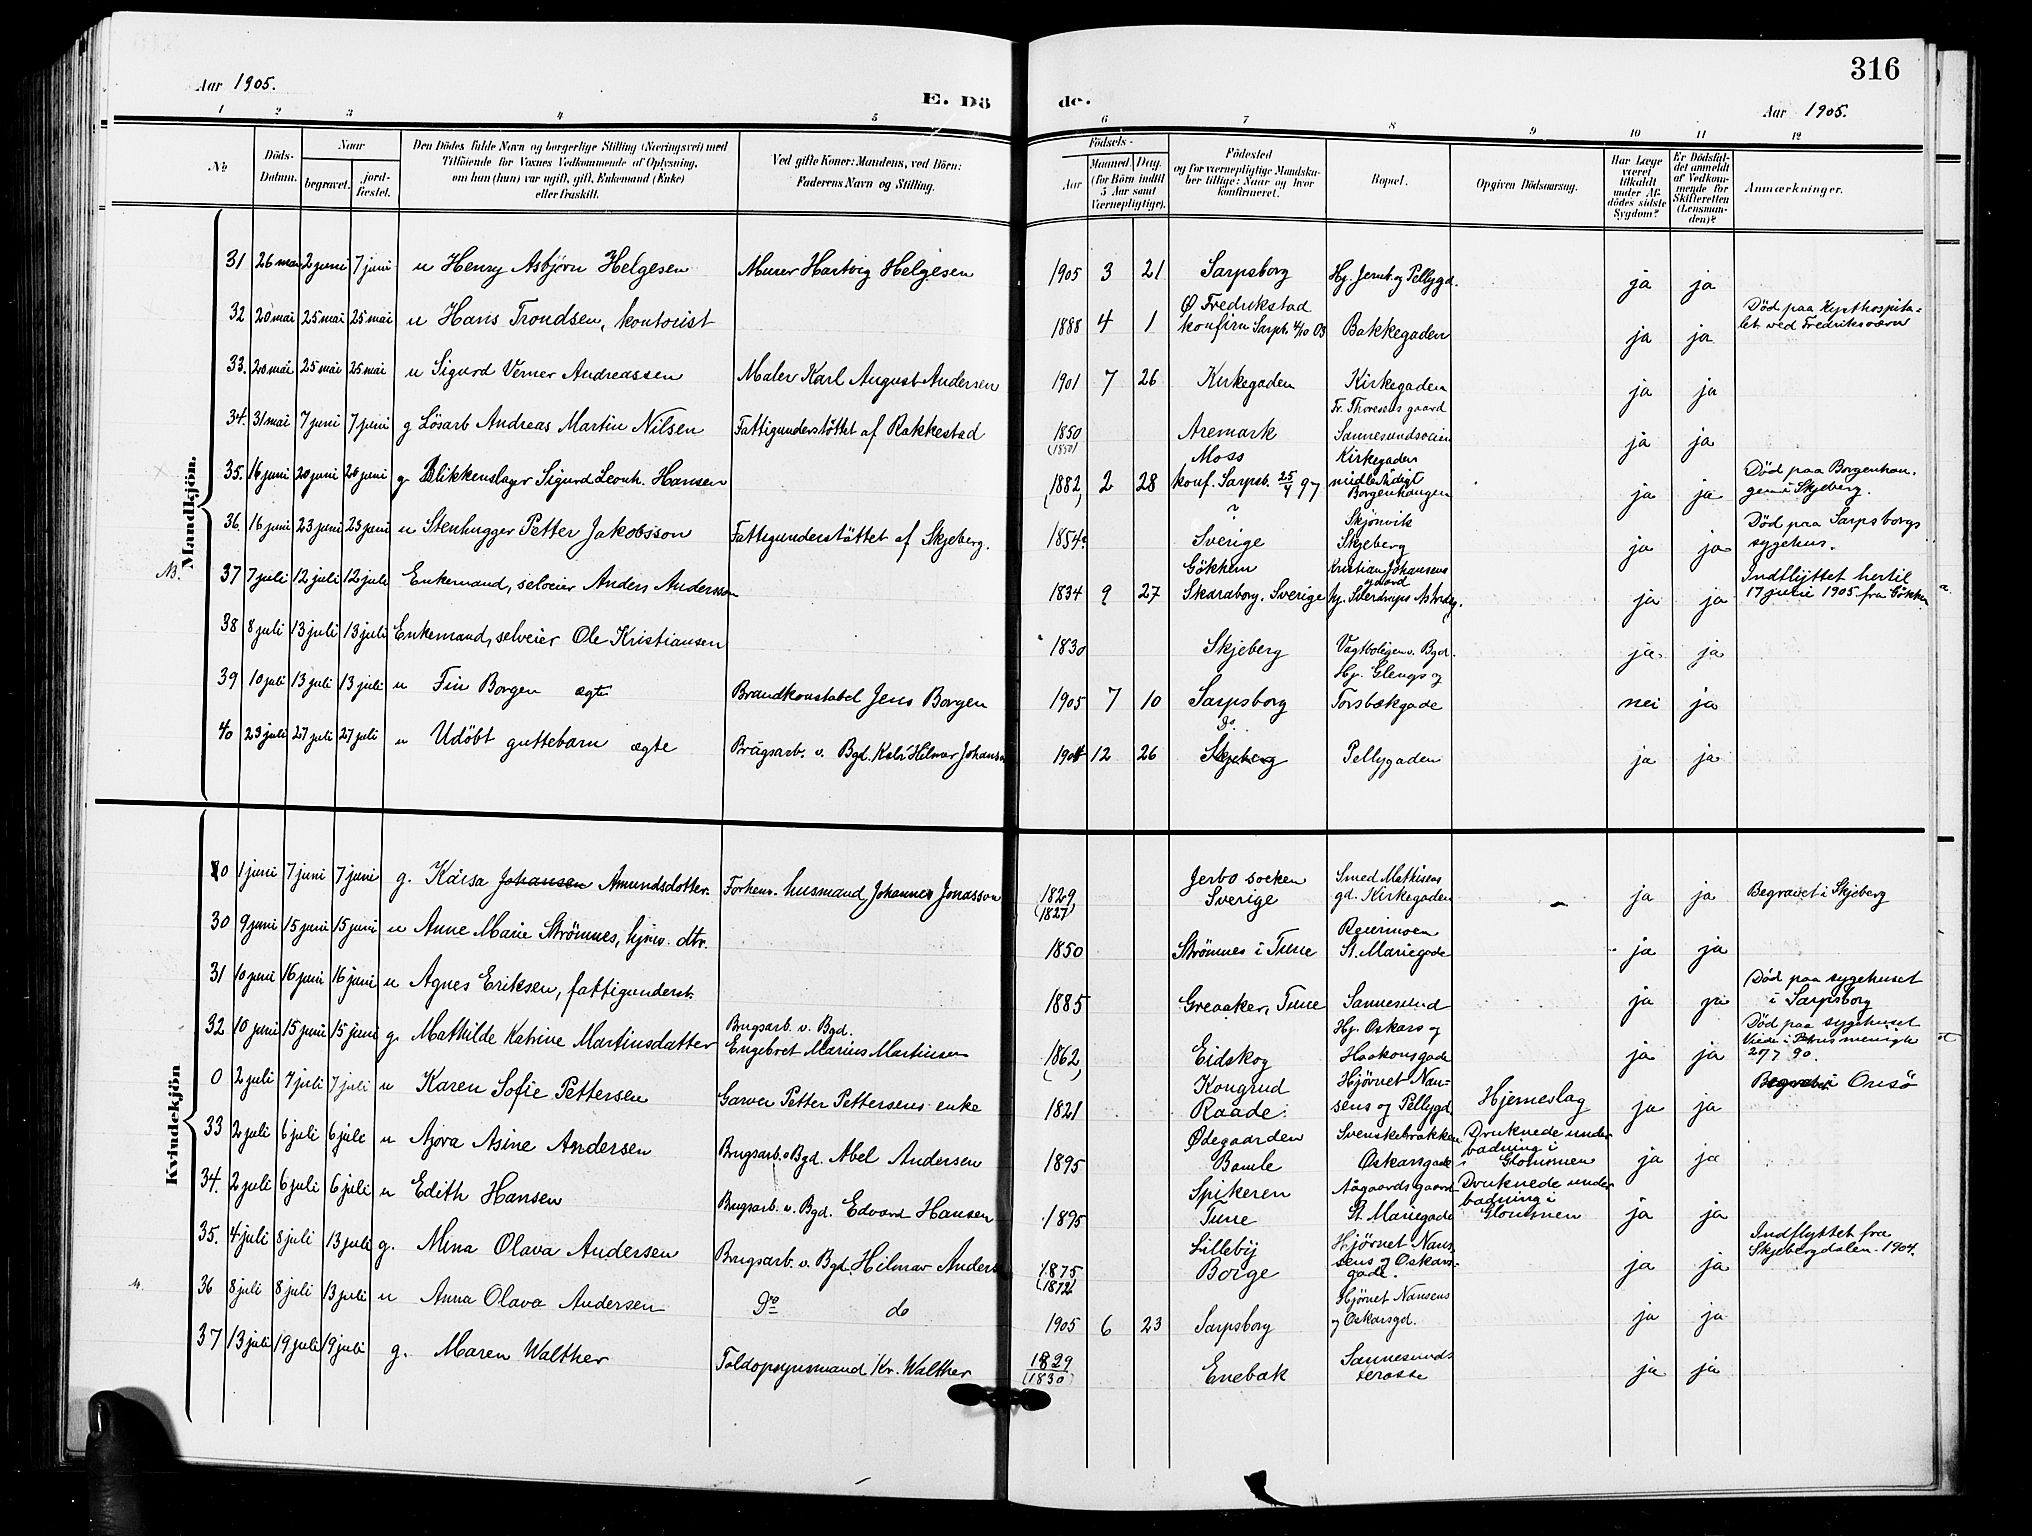 316
Aar 1905.
E. Dö de.
Aar 1905.
1 2 3 4 5 6 7 8 9 10 11 12
No
Döds-Datum.
Naar
begravet.
jordfæstet.
Den Dödes fulde Navn og borgerlige Stilling (Næringsvei) med Tilföiende for Voxnes Vedkommende af Oplysning, om han (hun) var ugift, gift, Enkemand (Enke) eller fraskilt.
Ved gifte Koner: Mandens, ved Börn: Faderens Navn og Stilling.
Födsels-
Aar
Maaned. Dag. (for Börn indtil 5 Aar samt Værnepligtige).
Födested og for værnepligtige Mandskaber tillige: Naar og hvor konfirmeret.
Bopæl.
Opgiven Dödsaarsag.
Har Læge været tilkaldt under Afdödes sidste Sygdom?
Er Dödsfaldet anmeldt af Vedkommende for Skifteretten (Lensmanden)?
Anmærkninger.
Mandkjön.
31 26 mai 2 juni 7 juni u Henry Asbjørn Helgesen Murer Hartvig Helgesen 1905 3 21 Sarpsborg Hj. Jernb. og Pellygd. ja ja
32 20 mai 25 mai 25 mai u Hans Trondsen, kontorist 1888 4 1 Ø Fredrikstad konfirm Sarpb. 4/10 03 Bakkegaden ja ja Død paa Kysthospitalet ved Fredriksværn
33. 20 mai 25 mai 25 mai u Sigurd Verner Andreassen Maler Karl August Andersen 1901 7 26 Kirkegaden Kirkegaden ja ja
34. 31 mai 7 juni 7 juni g Lösarb Andreas Martin Nilsen Fattigunderstöttet af Rakkestad 1850 (1850) Aremark Fr. Thoresens gaard Sannesundsveien ja ja
35. 14 juni 20 juni 20 juni g. Blikkenslager Sigurd Leonh. Hansen 1882 2 28 Moss konf. Sarpsb. 25/4 97 Kirkegaden midlertidigt Borgenhaugen ja ja Död paa Borgenhaugen i Skjeberg.
36. 16 juni 23 juni 23 juni u Stenhugger Petter Jakobsson Fattigunderstöttet af Skjeberg. 1854? ? Sverige Skjönvik Skjeberg ja ja Död paa Sarpsborgs sygehus.
N. 37 7 juli 12 juli 12 juli Enkemand, selveier Anders Andersson 1834 9 27 Gökhem Skaraborg. Sverige Kristian Johansens gaard hj. Sverdrups ja ja Indflyttet hertil 17 juni 1905 fra Gökhem
38 8 juli 13 juli 13 juli Enkemand, selveier Ole Kristiansen 1830 Skjeberg Vagtboligen v. Bgd. ja ja
39 10 juli 13 juli 13 juli u Fin Borgen ægte Brandkonstabel Jens Borgen 1905 7 10 Sarpsborg Hj. Glengs og Torsbækgade nei ja
40 23 juli 27 juli 27 juli u Udöbt guttebarn ægte Brugsarb. v. Bgd. Kalr Hilmar Johansen 1904 12 26 do. Skjeberg Pellygaden ja ja
Kvindekjön
0 1 juni 7 juni 7 juni g. Kaisa Johansen Amundsdotter. Forhenv. husmand Johannes Jonasson 1829 (1827) Jerbo socken Sverige Smed Mathisens gd. Kirkegaden ja ja Begravet i Skjeberg
30 9 juni 15 juni 15 juni u Anne Marie Strömnes, hjmv. dtr. 1850 Strömnes i Tune Reiermoen St. Mariegade ja ja
31 10 juni 16 juni 16 juni u Agnes Eriksen, fattigunderst. 1885 Greaaker, Tune Sannesund ja ja Död paa sygehuset i Sarpsborg
32 10 juni 15 juni 15 juni g. Mathilde Katrine Martinsdatter Brugsarb. v. Bgd. Engebret Marius Martinsen 1862 Eidskog Hj. Oskars og Haakonsgade ja ja Död paa sygehuset Viede i Petrus menigh 20/7 90.
0 2 juli 7 juli 7 juli u Karen Sofie Pettersen Garver Petter Pettersens enke 1821 Kongrud Raade. Hjørnet Nansens og Pellygd Hjerneslag ja ja Begravet i Onsö
33 2 juli 6 juli 6 juli u Ajova Asine Andersen Brugsarb. v Bgd. Abel Andersen 1895 Ødegaarden Bamle Svenskebrakken Oskarsgade Druknede under badning i Glommen ja ja
34. 2 juli 6 juli 6 juli u Edith Hansen Brugsarb. v. Bgd. Edvard Hansen 1895 Spikeren Tune Aagaards gaard St. Mariegade Druknede under badning i Glommen ja ja
35. 4 juli 8 juli 13 juli g. Mina Olava Andersen Brugsarb. v. Bgd. Hilmar Anders 1875 (1872) Lilleby Borge Hjørnet Nansens og Oskarsgade. ja ja Indflyttet fra Skjebergdalen 1904.
36 8 juli 8 juli 13 juli u Anna Olava Andersen Do do 1905 6 23 Sarpsborg Hjørnet Nansens og Oskarsgd. ja ja
37 13 juli 19 juli 19 juli g. Maren Walther Toldopsynsmand Kr. Walther 1829 (1830) Enebak Sannesunds terasse ja ja